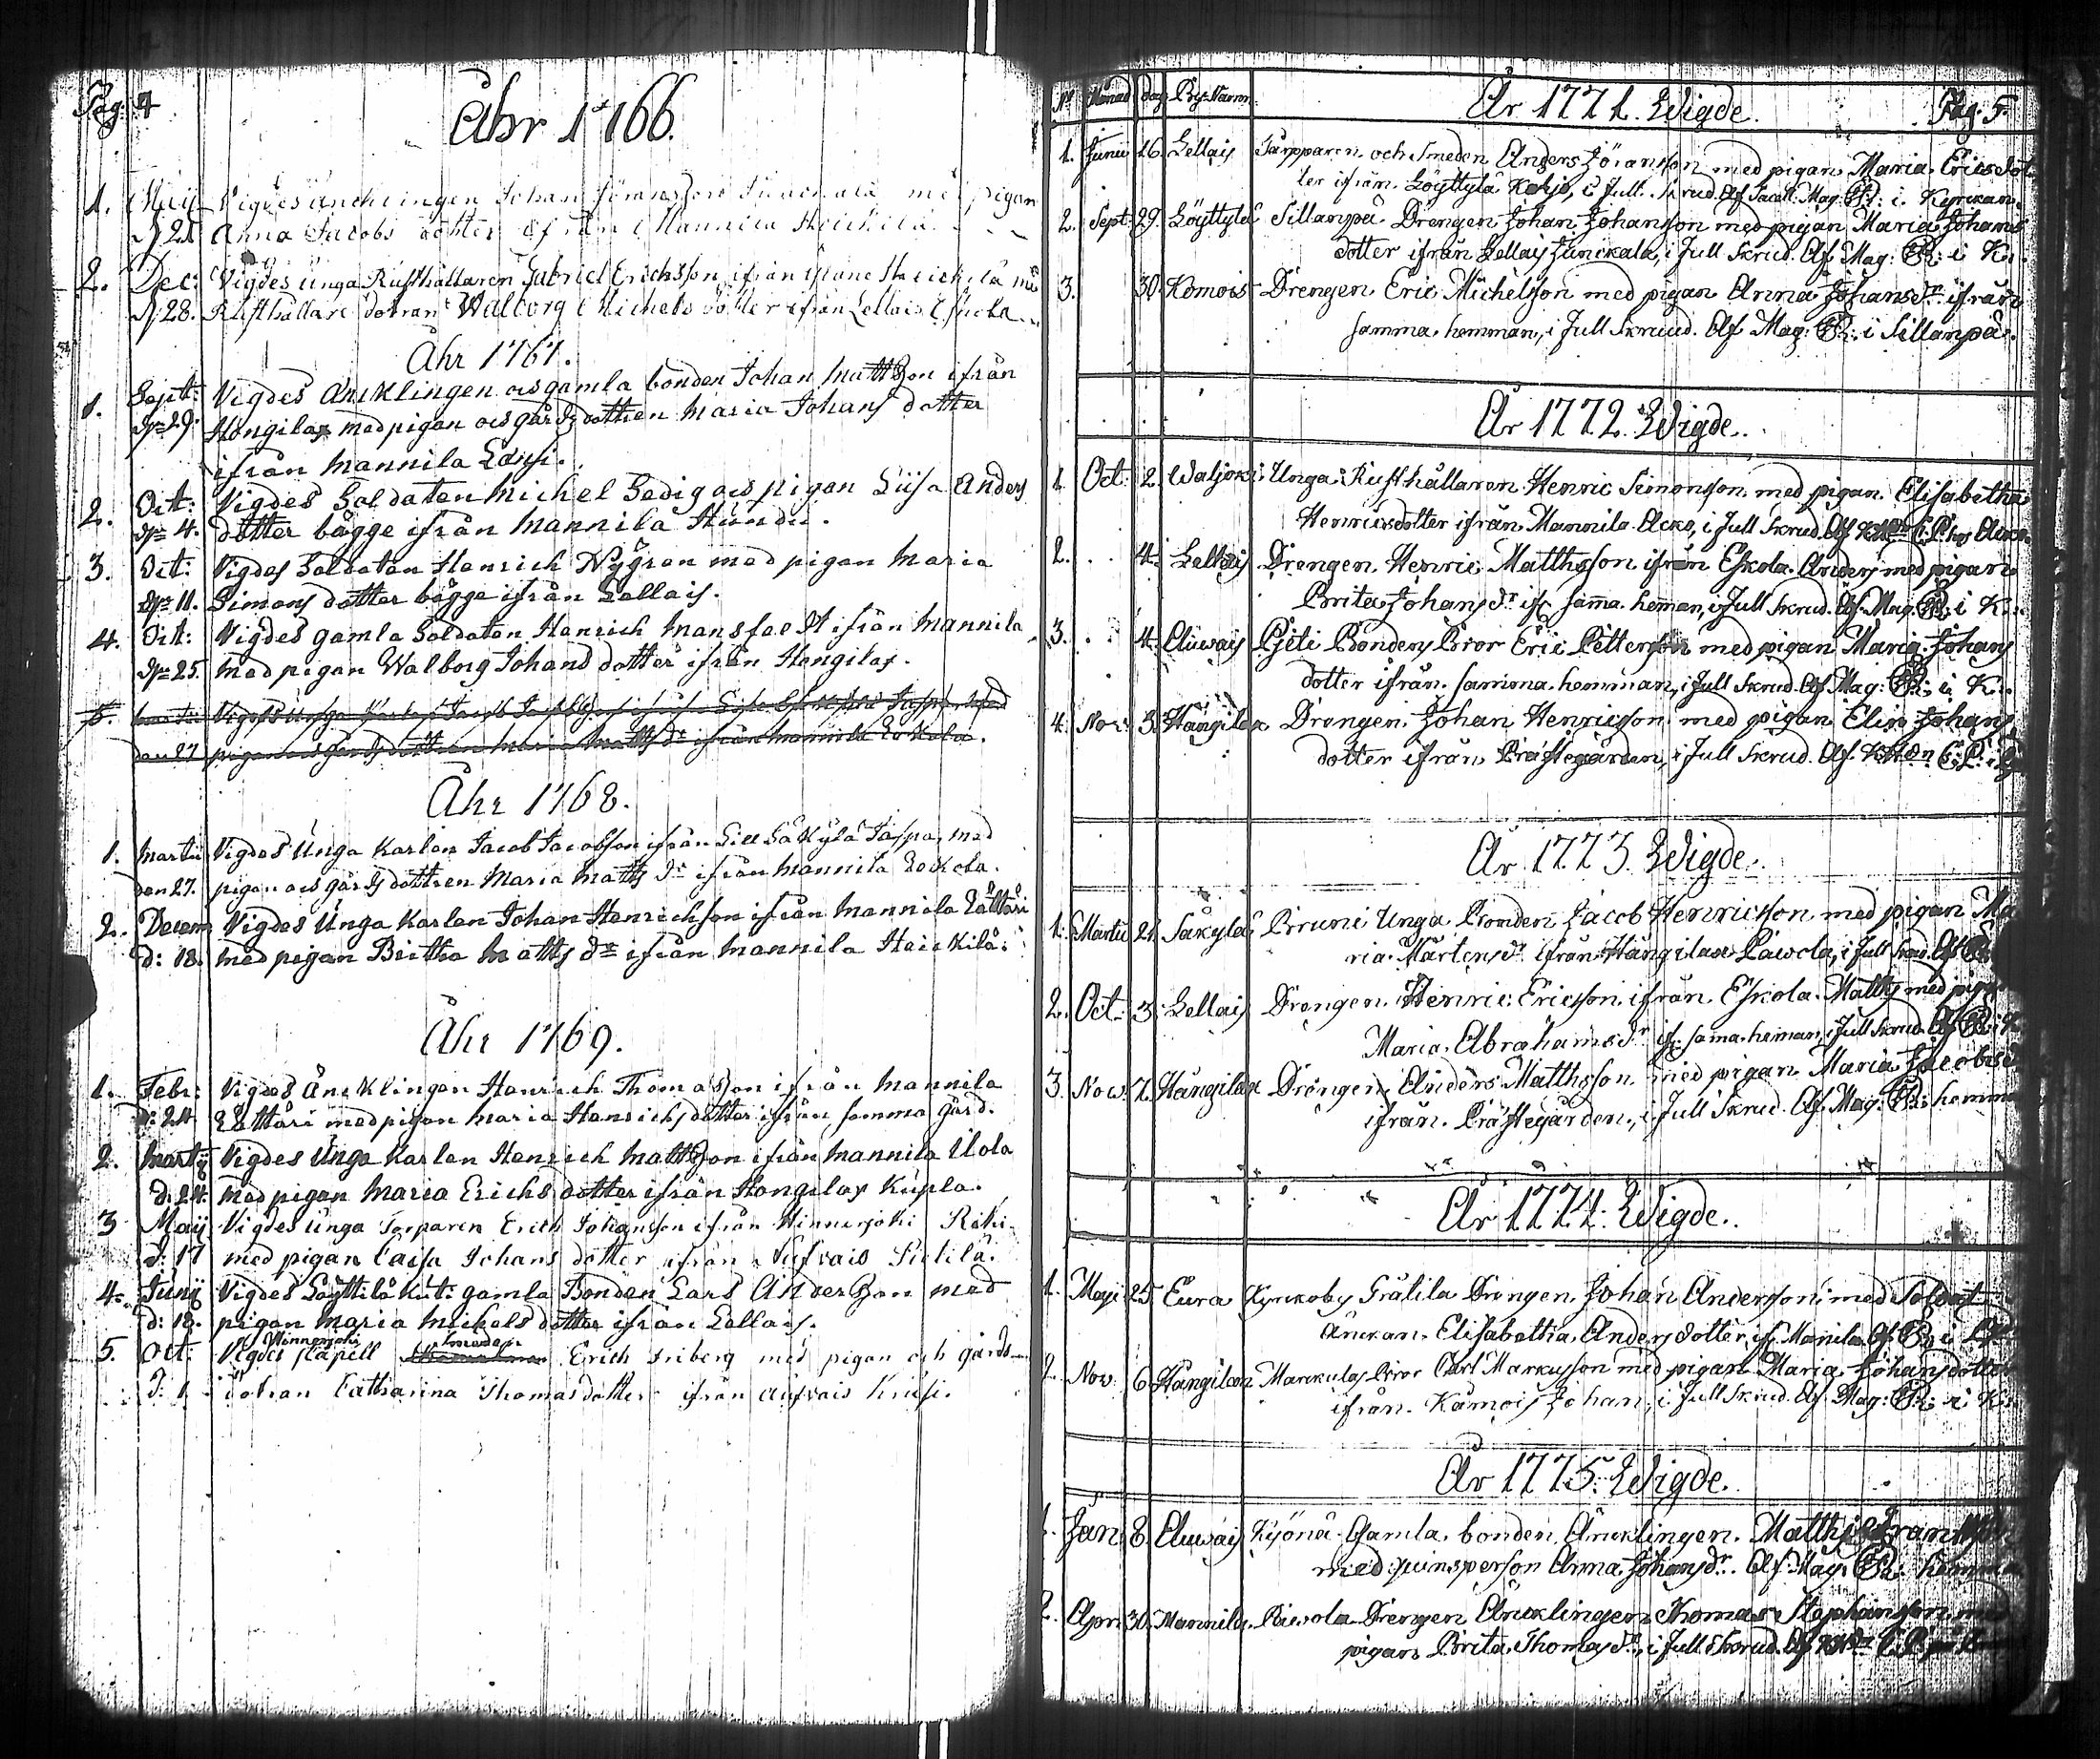 Pag: 4
Åhr 1766.
1. Maij Vigdes Äncklingen Johan Göransson Junckala med pigan
d 21 Anna Jacobs dotter ifrån Mannila Heickilä.
2. Dec: Vigdes Unga Rusthållaren Gabriel Erichsson ifrån Heickilä med
d 28. Rusthållare dotran Walborg Michels dotter ifrån Lellais Eskola
Åhr 1767.
1. Sept: Vigdes Äncklingen och gamla bonden Johan Mattsson ifrån
dn 29. Hongilax med pigan och gårdz dottren Maria Johans dotter
ifrån Mannila Lausi.
2. Oct: Vigdes Soldaten Michel Sedig och pigan Liisa Anders
dn 4. dotter bägge ifrån Mannila Hundi.
3. Oct: Vigdes Soldaten Henrich Nygren med pigan Maria
dn 11. Simons dotter bägge ifrån Lellais.
4. Oct: Vigdes gamla Soldaten Henrich Mansfeldt ifrån Mannila
dn 25. med pigan Walborg Johans dotter ifrån Hongilax.
5. Martii Vigdes Unga Karlen Jacob Jacobson ifrån Jaspa med
den 27 pigan och gårdz dottren Maria Matts dr ifrån Mannila Eockola.
Åhr 1768.
1. Martii Vigdes Unga Karlen Jacob Jacobson ifrån Lill Säkylä Jaspa, med
den 27. pigan och gårdz dottren Maria Matts dr ifrån Mannila Eockola.
2. Decem Vigdes Unga Karlen Johan Henrichson ifrån Mannila Lättäri
d: 18. med pigan Britha Matts dr ifrån Mannila Heickilä.
Åhr 1769.
1. Febr: Vigdes Äncklingen Henrich Thomasson ifrån Mannila
d: 24 Lättäri med pigan Maria Henrichs dotter ifrån samma gård.
2. Martij Vigdes Unga Karlen Henrich Mattsson ifrån Mannila Ülola
d. 24. med pigan Maria Erichs dotter ifrån Hongilax Kupla.
3 Maij Vigdes Unga Torparen Erich Johansson ifrån Hinnerjoki Riki
d: 17 med pigan Caisa Johans dotter ifrån Aufvais Pietilä.
4. Junij Vigdes Löyttilä Kut: gamla Bonden Lars Andersson med
d: 18. pigan Maria Michels dotter ifrån Lellais.
Hinnerjoki smeden
5. Oct: Vigdes Kapell Erich Friberg med pigan och gårds
d: 1 dotran Catharina Thomas dotter ifrån Aufvais Krusi.
No Månad dag By-Namn. År 1771. Wigde. Pag. 5.
1. Junii 16. Lellais Torpparen och Smeden Anders Göransson med pigan Maria Ericsdot
ter ifrån Löyttylä Kohjo, i full skrud. Af Mag: i Kyrckan.
2. Sept: 29. Löyttylä Sillanpä Drengen Johan Johansson med pigan Maria Johans
dotter ifrån Lellais Junckala, i full skrud. Af Mag: i K.
3. 30. Kömois Drengen Eric Michelsson med pigan Anna Johansdr ifrån
samma hemman, i full skrud. Af Mag: i Sillanpä.
År 1772. Wigde.
1 Oct: 2 Waljoki Unga Rusthållaren Henric Simonsson med pigan Elisabetha
Henricsdotter ifrån Mannila Acko, i full skrud. Af
2. 4. Lellais Drengen Henric Matthsson ifrån Eskola Anders med pigan
Brita Johansdr ifr samma hemman, i full skrud. Af Mag. i K.
3. 4. Auwais Pjeti Bondens Bror Eric Pettersson med pigan Maria Johans
dotter ifrån samma hemman, i full skrud. Af Mag: i K.
4. Nov: 3. Hängilax Drengen Johan Henricsson med pigan Elin Johans
dotter ifrån Prästegården, i full skrud. Af
År 1773. Wigde.
1. Martii 21. Säkylä Bruni Unga Bonden Jacob Henricsson med pigan Ma
ria Mårtensdr ifrån Hängilax Päiwola, i full skrud. Af
2. Oct: 3. Lellais Drengen Henric Ericsson ifrån Eskola Matts med pigan
Maria Abrahamsdr ifr: sama heman, i full skrud. Af
3. Now. 7. Hängilax Drengen Anders Matthsson med pigan Maria Jacobsd
ifrån Prästegården, i full skrud. Af Mag: hemma
År 1774: Wigde.
1. Maji 25. Eura Kyrckoby Frälila Drengen Johan Andersson med Soldat
Änckan Elisabetha Anders dotter, if. Manila. Af
2 Nov. 6 Hängilax Marckulas Bror Carl Markusson med pigan Maria Johansdotter
ifrån Kämois Johan, i full skrud. Af Mag: i K.
År 1775: Wigde.
1. Jan: 8. Auwais Kyönä Gamla bonden Äncklingen Matths
med qwinsperson Anna Johansdr. Af Mag. hemma
2. Apr: 30. Mannila Päiwola Drengen Äncklingen Thomas Stephansson med
pigan Brita Thomasdr, i full skrud. Af